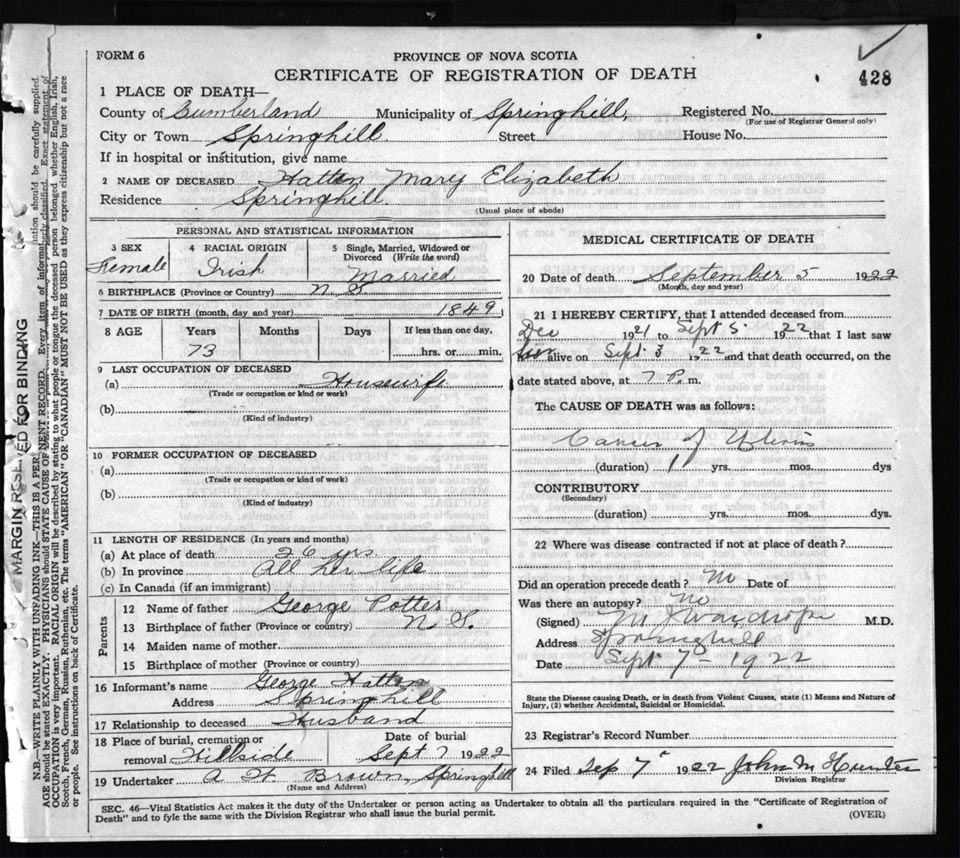 FORM 6
PROVINCE OF NOVA SCOTIA
CERTIFICATE OF REGISTRATION OF DEATH
428
1 PLACE OF DEATH—
County of Cumberland Municipality of Springhill, Registered No.
(For use of Registrar General only)
City or Town Springhill. Street House No.
If in hospital or institution, give name
2 NAME OF DECEASED Hatton Mary Elizabeth
Residence Springhill.
(Usual place of abode)
PERSONAL AND STATISTICAL INFORMATION
3 SEX 4 RACIAL ORIGIN 5 Single, Married, Widowed or Divorced (Write the word)
Female Irish Married
6 BIRTHPLACE (Province or Country) N. S.
7 DATE OF BIRTH (month, day and year) 1849
8 AGE Years Months Days If less than one day,
73 hrs. or min.
9 LAST OCCUPATION OF DECEASED
(a) Housewife
(Trade or occupation or kind or work)
(b)
(Kind of industry)
10 FORMER OCCUPATION OF DECEASED
(a)
(Trade or occupation or kind of work)
(b)
(Kind of industry)
11 LENGTH OF RESIDENCE (In years and months)
(a) At place of death 26 yrs
(b) In province All her life
(c) In Canada (if an immigrant)
Parents
12 Name of father George Potter
13 Birthplace of father (Province or country) N. S.
14 Maiden name of mother
15 Birthplace of mother (Province or country)
16 Informant's name George Hatton
Address Springhill
17 Relationship to deceased Husband
18 Place of burial, cremation or removal Hillside
Date of burial Sept 7 1922
19 Undertaker Brown, Springhill
(Name and Address)
MEDICAL CERTIFICATE OF DEATH
20 Date of death September 5 1922
(Month, day and year)
21 I HEREBY CERTIFY, that I attended deceased from
Dec 1921 to Sept 5 1922 that I last saw
alive on Sept 3 1922 and that death occurred, on the
date stated above, at 7 P. m.
The CAUSE OF DEATH was as follows:
Cancer of Uterus
(duration) 1 yrs. mos. dys
CONTRIBUTORY
(Secondary)
(duration) yrs. mos. dys.
22 Where was disease contracted if not at place of death?
Did an operation precede death? No Date of
Was there an autopsy? No
(Signed) M.D.
Address Springhill
Date Sept 7 - 1922
State the Disease causing Death, or in death from Violent Causes, state (1) Means and Nature of
Injury, (2) whether Accidental, Suicidal or Homicidal.
23 Registrar's Record Number
24 Filed Sep 7 1922 John M Hunter
Division Registrar
SEC. 46—Vital Statistics Act makes it the duty of the Undertaker or person acting as Undertaker to obtain all the particulars required in the "Certificate of Registration of
Death" and to fyle the same with the Division Registrar who shall issue the burial permit.
(OVER)
MARGIN RESERVED FOR BINDING
N.B.—WRITE PLAINLY WITH UNFADING INK—THIS IS A PERMANENT RECORD. Every item of information should be carefully supplied.
AGE should be stated EXACTLY. PHYSICIANS should STATE CAUSE OF classified. Exact statement of
OCCUPATION is very important. RACIAL ORIGIN will be described by stating to what people or tongue the deceased person belonged whether English, Irish,
Scotch, French, German, Russian, Ruthenian, etc. The terms "AMERICAN" OR "CANADIAN" MUST NOT BE USED as they express citizenship but not a race
or people. See instructions on back of Certificate.